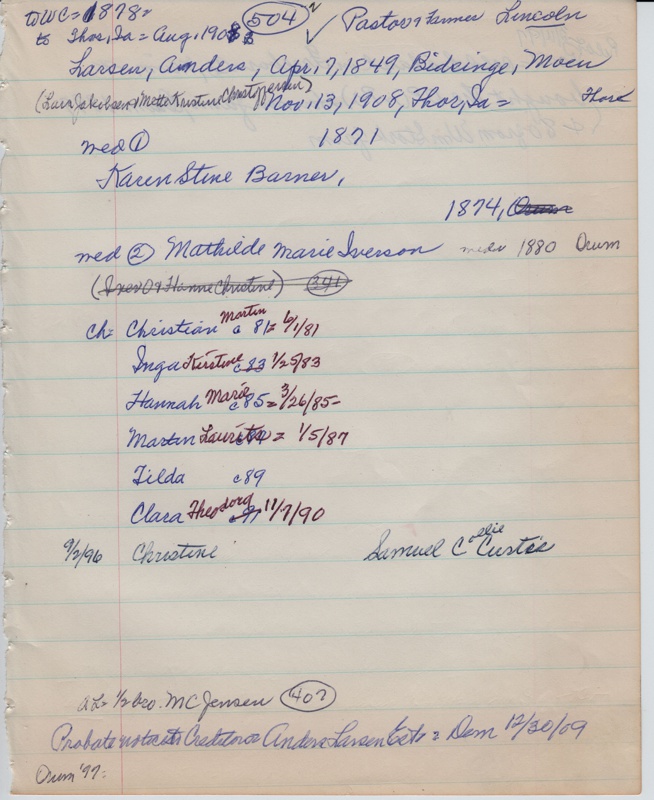 to WC = 1878 =
504
2
✓ Pastor & Farmer Lincoln
to Thor, Ia = Aug. 1908
Larsen, Anders, Apr. 7, 1849, Bidsinge, Moen
(Lars Jakobsen & Mette Kirstine Christoffersen) Nov. 13, 1908, Thor, Ia = Thor
med ① 1871
Karen Stine Barner,
1874, Orum
med ② Mathilde Marie Iverson 1880 Orum
(Iver O & Hanne Christine) 241
ch = Christian Martin c 81 = 6/1/81
Inga Kirstine c83 1/25/83
Hannah Marie c85 = 3/26/85 -
Martin Lauritz = 1/5/87
Tilda c89
Clara Theodora 11/7/90
9/2/96 Christine Samuel C Curtis
AL = 1/2 bro. MC Jensen 407
Probate notice to Creditors Anders Larsen Este = Dem 12/30/09
Orum '77: